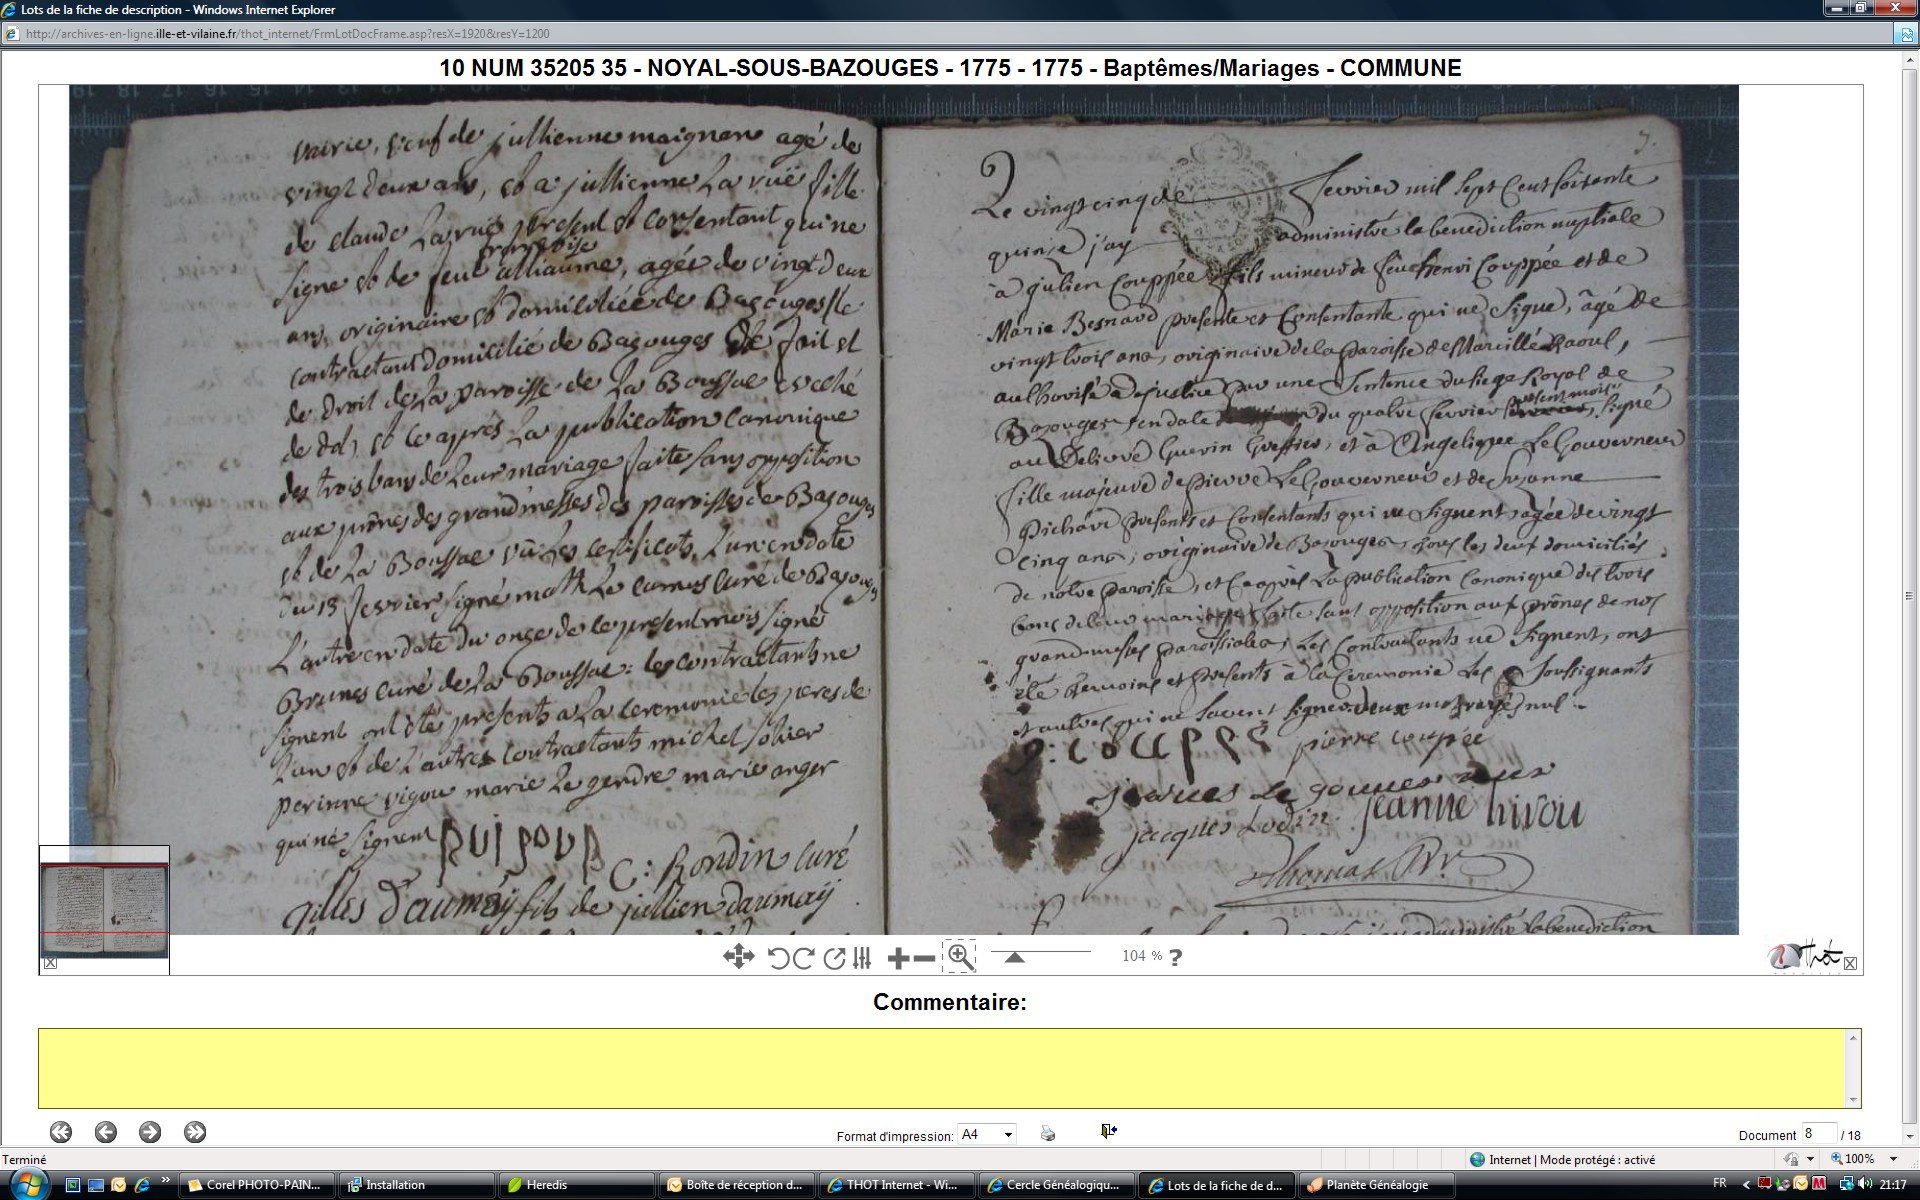 Lots de la fiche de description - Windows Internet Explorer
http://archives-en-ligne.ille-et-vilaine.fr/thot_internet/FrmLotDocFrame.asp?resX=1920&resY=1200
10 NUM 35205 35 - NOYAL-SOUS-BAZOUGES - 1775 - 1775 - Baptêmes/Mariages - COMMUNE
vairie, veuf de jullienne maignan agé de
vingt deux ans, et a jullienne La rué fille
de claude La rué present et consentant qui ne
francoise
signe et de feue alliaume, agée de vingt deux
ans, originaire et domiciliée de Bazouges le
contractant domicilié de Bazouges de fait et
de droit de La paroisse de La Boussac evesché
de dol, et ce après La publication canonique
des trois bans de Leur mariage faite sans opposition
aux prônes des grandmesses des paroisses de Bazouges
et de La Boussac vû Les certificats, L'un en date
du 13 fevrier signé math Le camus curé de Bazouges
L'autre en date du onze de ce present mois signé
Brunes curé de La Boussac: les contractants ne
signent ont été presents a La ceremonie les peres de
L'un et de L'autre contractants michel solier
perinne vigou marie Le gendre marie anger
qui ne signent
C: Rondin curé
gilles Daumaÿ fils de jullien daumaÿ
Le vingt cinq de fevrier mil sept Cent soixante
quinze j'ay administré la benediction nuptiale
à julien Couppée fils mineur de feu henri Couppée et de
Marie Besnard presente et Consentante qui ne Signe, âgé de
vingt trois ans, originaire de la Paroisse de Marcillé Raoul,
authorisé de justice par une Sentence du siege Royal de
Bazouges en date du quatre fevrier present mois, signé
au Delivré Guerin Greffier, et à Angelique Le Gouverneur
fille majeure de pierre Le Gouverneur et de Suzanne
Richard presents et Consentants qui ne Signent, agée de vingt
cinq ans, originaire de Bazouges, tous les deux domiciliés
de notre Paroisse, et Ce après La publication Canonique des trois
bans de leur mariage faite sans opposition aux prônes de nos
grandmesses paroissiales, Les Contractants ne Signent, ont
été temoins et presents à la Ceremonie Les Soussignants
et autres qui ne savent signer deux mots rayés nuls
pierre coupée
jacques Lodin jeanne hirou
Thomas
administré la benediction
104 % ?
Thot
Commentaire:
Format d'impression: A4
Document 8 / 18
Terminé
Internet | Mode protégé : activé
100%
Corel PHOTO-PAIN...
Installation
Heredis
Boîte de réception d...
THOT Internet - Wi...
Cercle Généalogiqu...
Lots de la fiche de d...
Planète Généalogie
FR
21:17